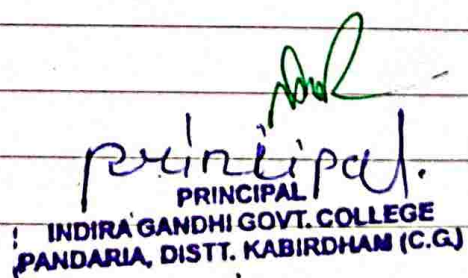 principal.
PRINCIPAL
INDIRA GANDHI GOVT. COLLEGE
PANDARIA, DISTT. KABIRDHAM (C.G.)